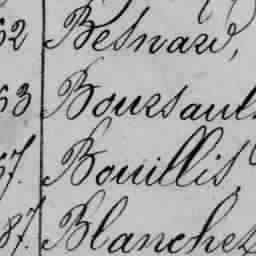 62 Besnard,
63 Boursault
67. Bouillis,
87. Blanchet